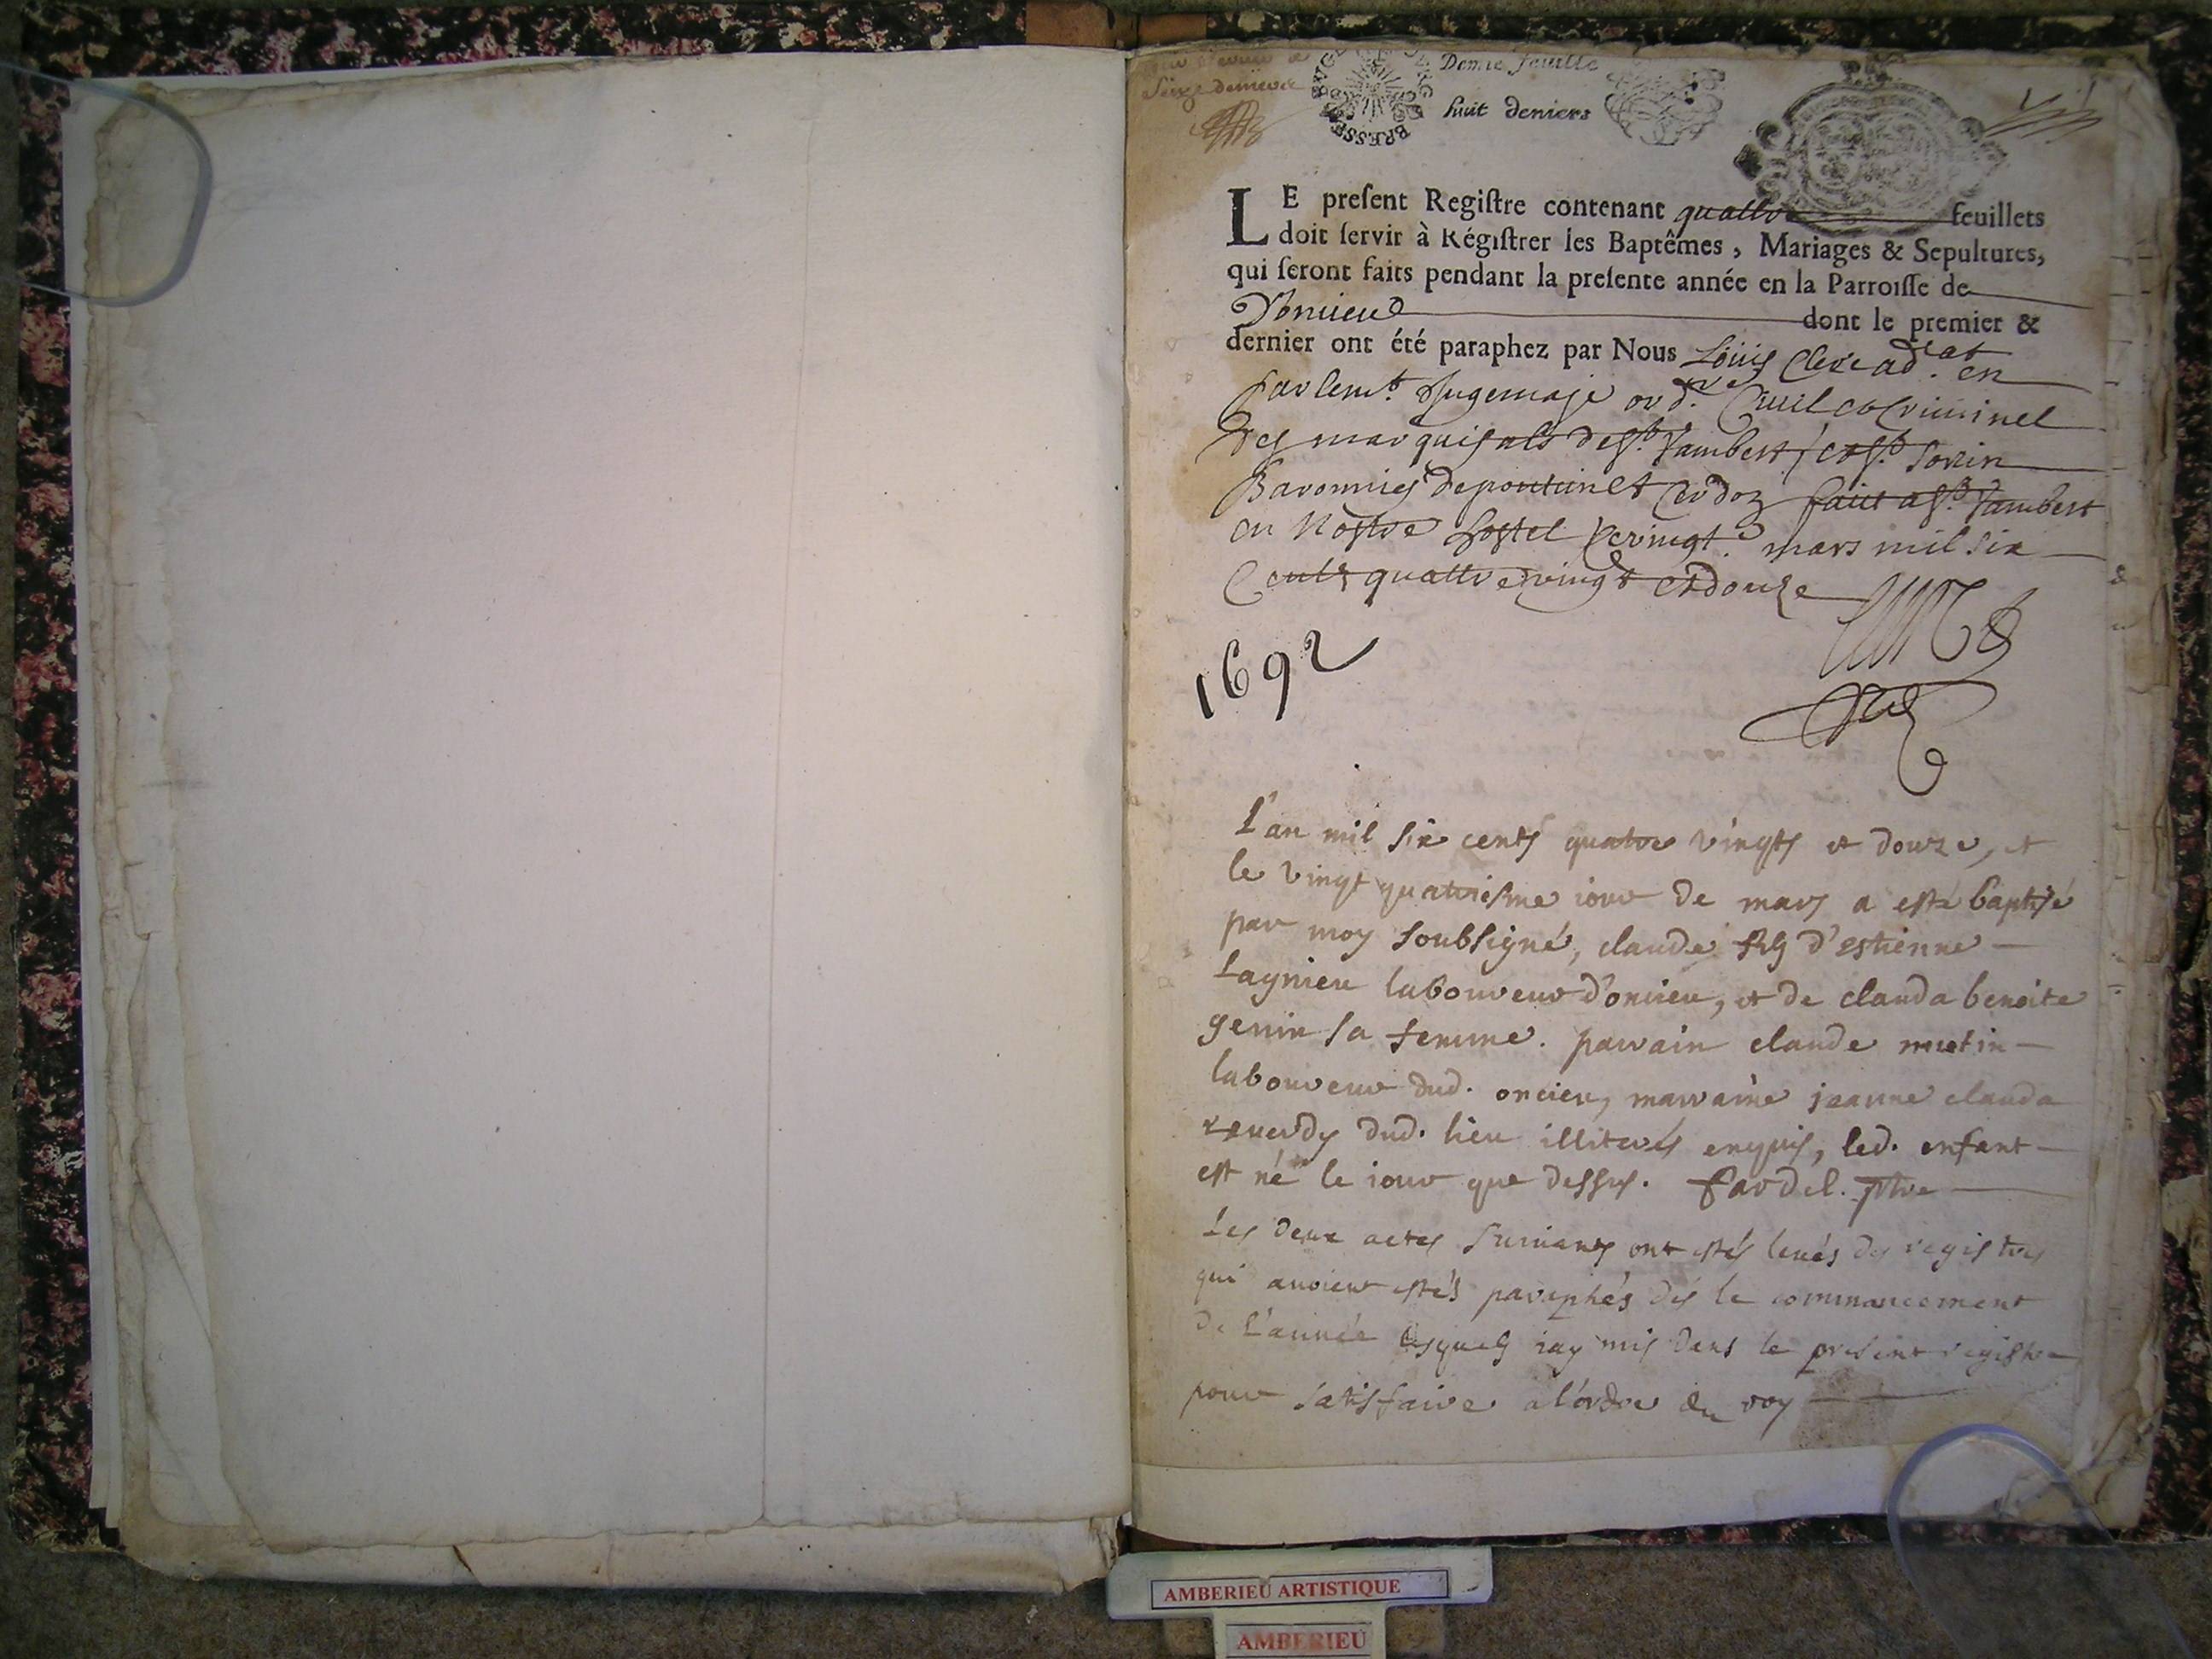 Demie feuille
Seize deniers
huit deniers
BRESSE
LE preſent Regiſtre contenant quattre feuillets
doit ſervir à Régiſtrer les Baptêmes, Mariages & Sepultures,
qui ſeront faits pendant la preſente année en la Parroiſſe de
D'oncieu dont le premier &
dernier ont été paraphez par Nous Loüis Clerc adcat en
parlemt. Jugemaje ordre. Ciuil et Criminel
des marquisats de St. Rambert, et St. Sorlin
Baronnies de et Cerdon faict a St. Rambert
en Nostre hostel Le vingte mars mil six
Cents quattre vingt et douze
1692
L'an mil six cents quatre vingts et douze, et
le vingt quatriesme iour de mars a esté baptisé
par moy soubsigné, claude fils d'estienne
Lagnieu laboureur d'oncieu, et de clauda benoite
genin sa femme. parrain claude mutin
laboureur dud. oncieu, marraine jeanne clauda
reuerdy dud. lieu illiterés enquis, led. enfant
est né le iour que dessus. fardel. ptre
Les deux actes suiuants ont estés leués des registres
qui auoient estés paraphés dés le commancement
de L'année lesquels iay mis dans le present registre
pour satisfaire a l'ordre du roy
AMBERIEU ARTISTIQUE
AMBERIEU